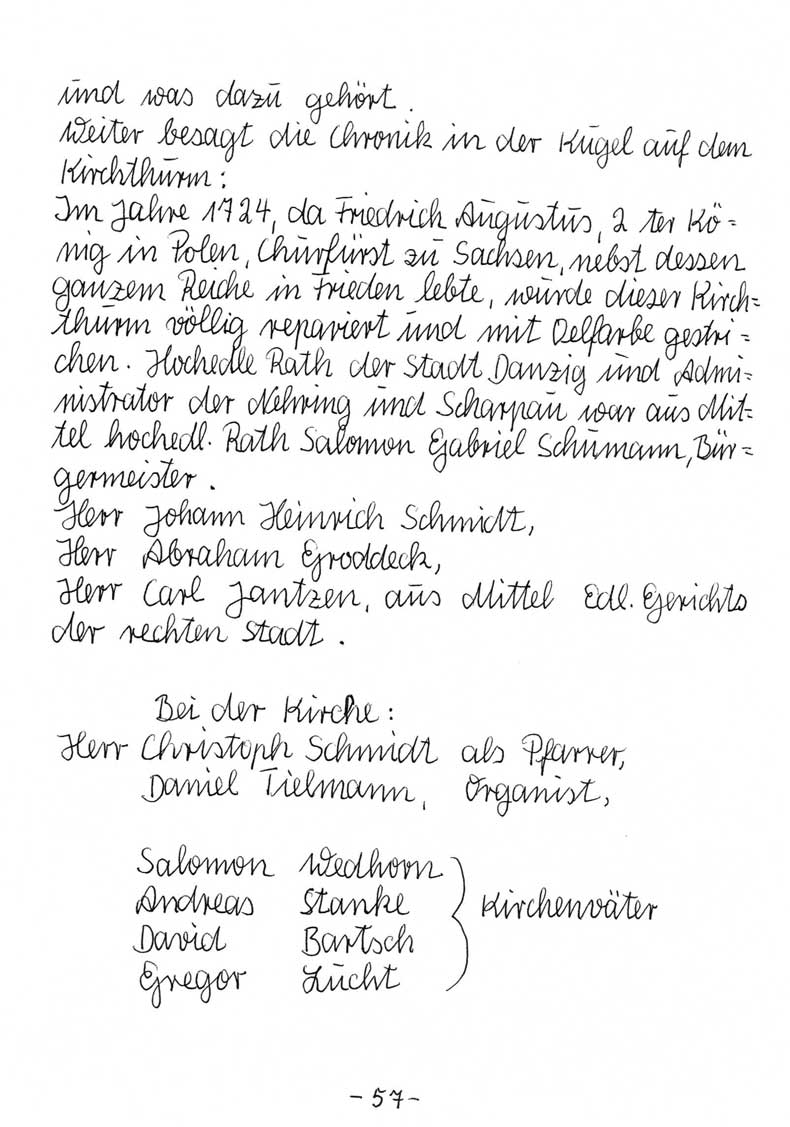 und was dazu gehört.
Weiter besagt die Chronik in der Kugel auf dem
Kirchthurm:
Im Jahre 1724, da Friedrich Augustus, 2 ter Kö=
nig in Polen, Churfürst zu Sachsen, nebst dessen
ganzem Reiche in Frieden lebte, wurde dieser Kirch=
thurm völlig repariert und mit Oelfarbe gestri=
chen. Hochedle Rath der Stadt Danzig und Admi=
nistrator der Nehring und Scharpau war aus Mit=
tel hochedl. Rath Salomon Gabriel Schumann, Bür=
germeister.
Herr Johann Heinrich Schmidt,
Herr Abraham Groddeck,
Herr Carl Jantzen, aus Mittel Edl. Gerichts
der rechten Stadt.
Bei der Kirche:
Herr Christoph Schmidt als Pfarrer,
Daniel Tielmann, Organist,
Salomon Wedhorn
Andreas Stanke Kirchenväter
David Bartsch
Gregor Lucht
- 57 -